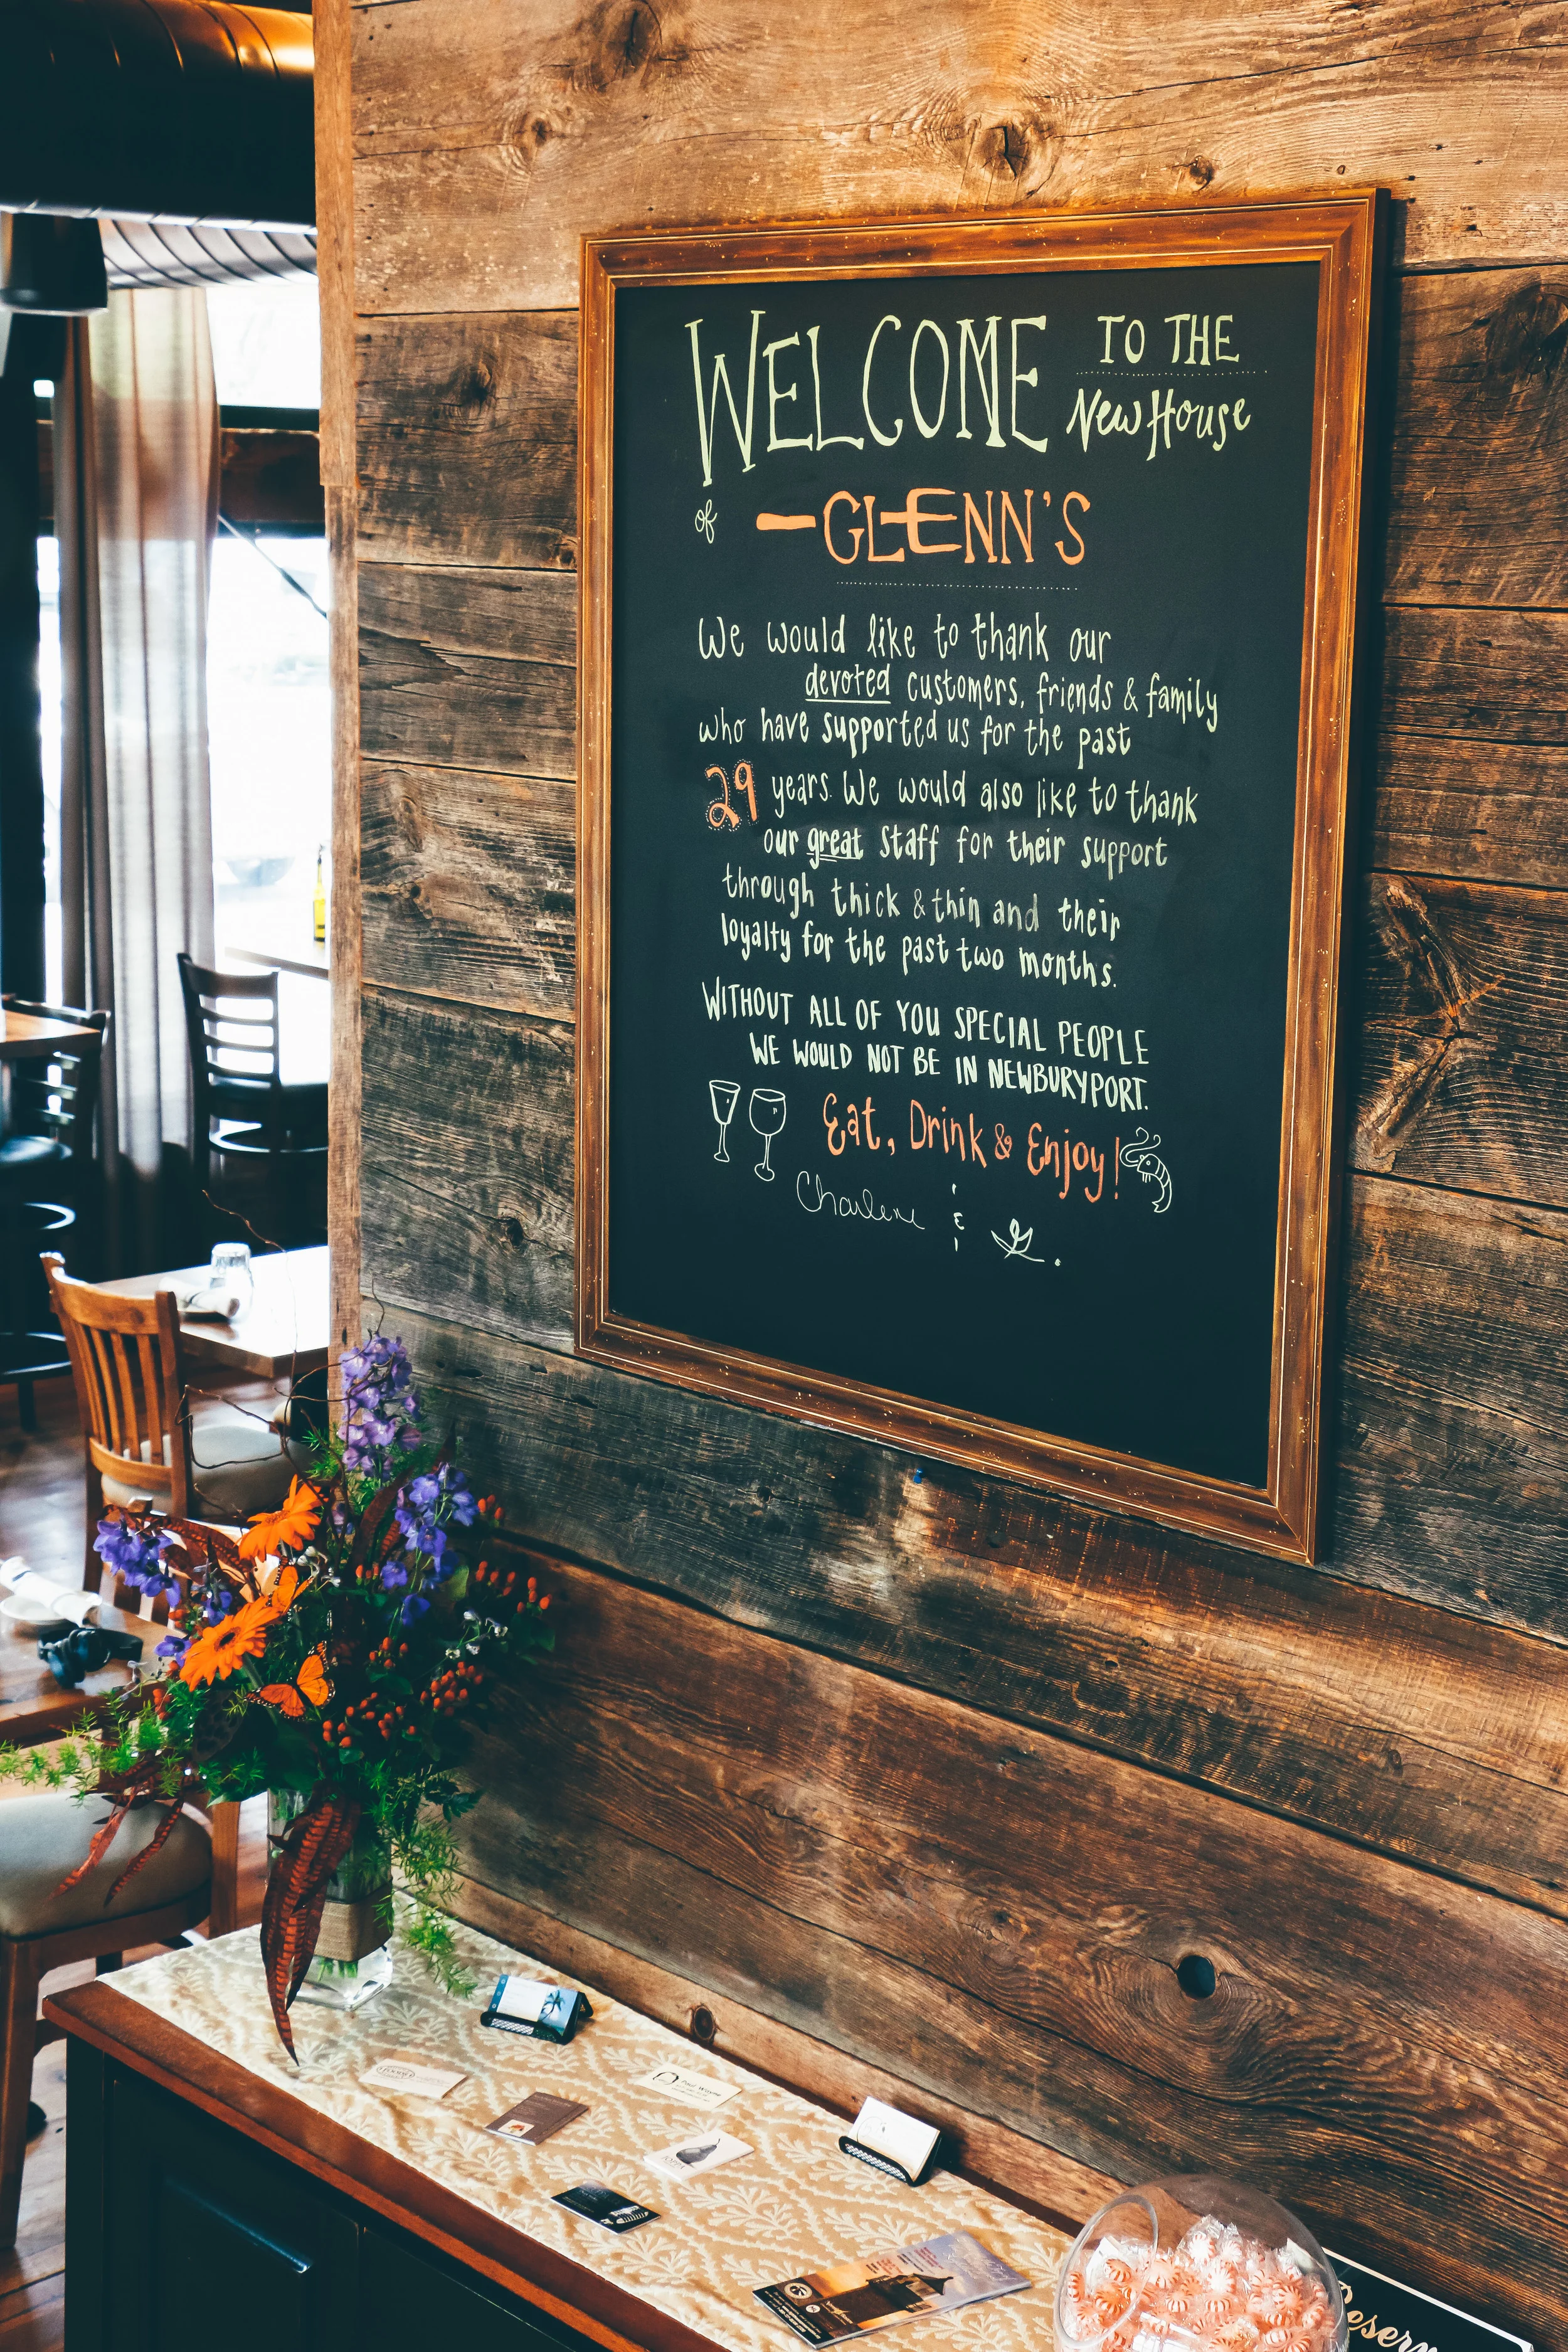 WELCOME TO THE
New House
of GLENN'S
We would like to thank our
devoted customers, friends & family
who have supported us for the past
29 years. We would also like to thank
our great staff for their support
through thick & thin and their
loyalty for the past two months.
WITHOUT ALL OF YOU SPECIAL PEOPLE
WE WOULD NOT BE IN NEWBURYPORT.
Eat, Drink & Enjoy!
Charlene &